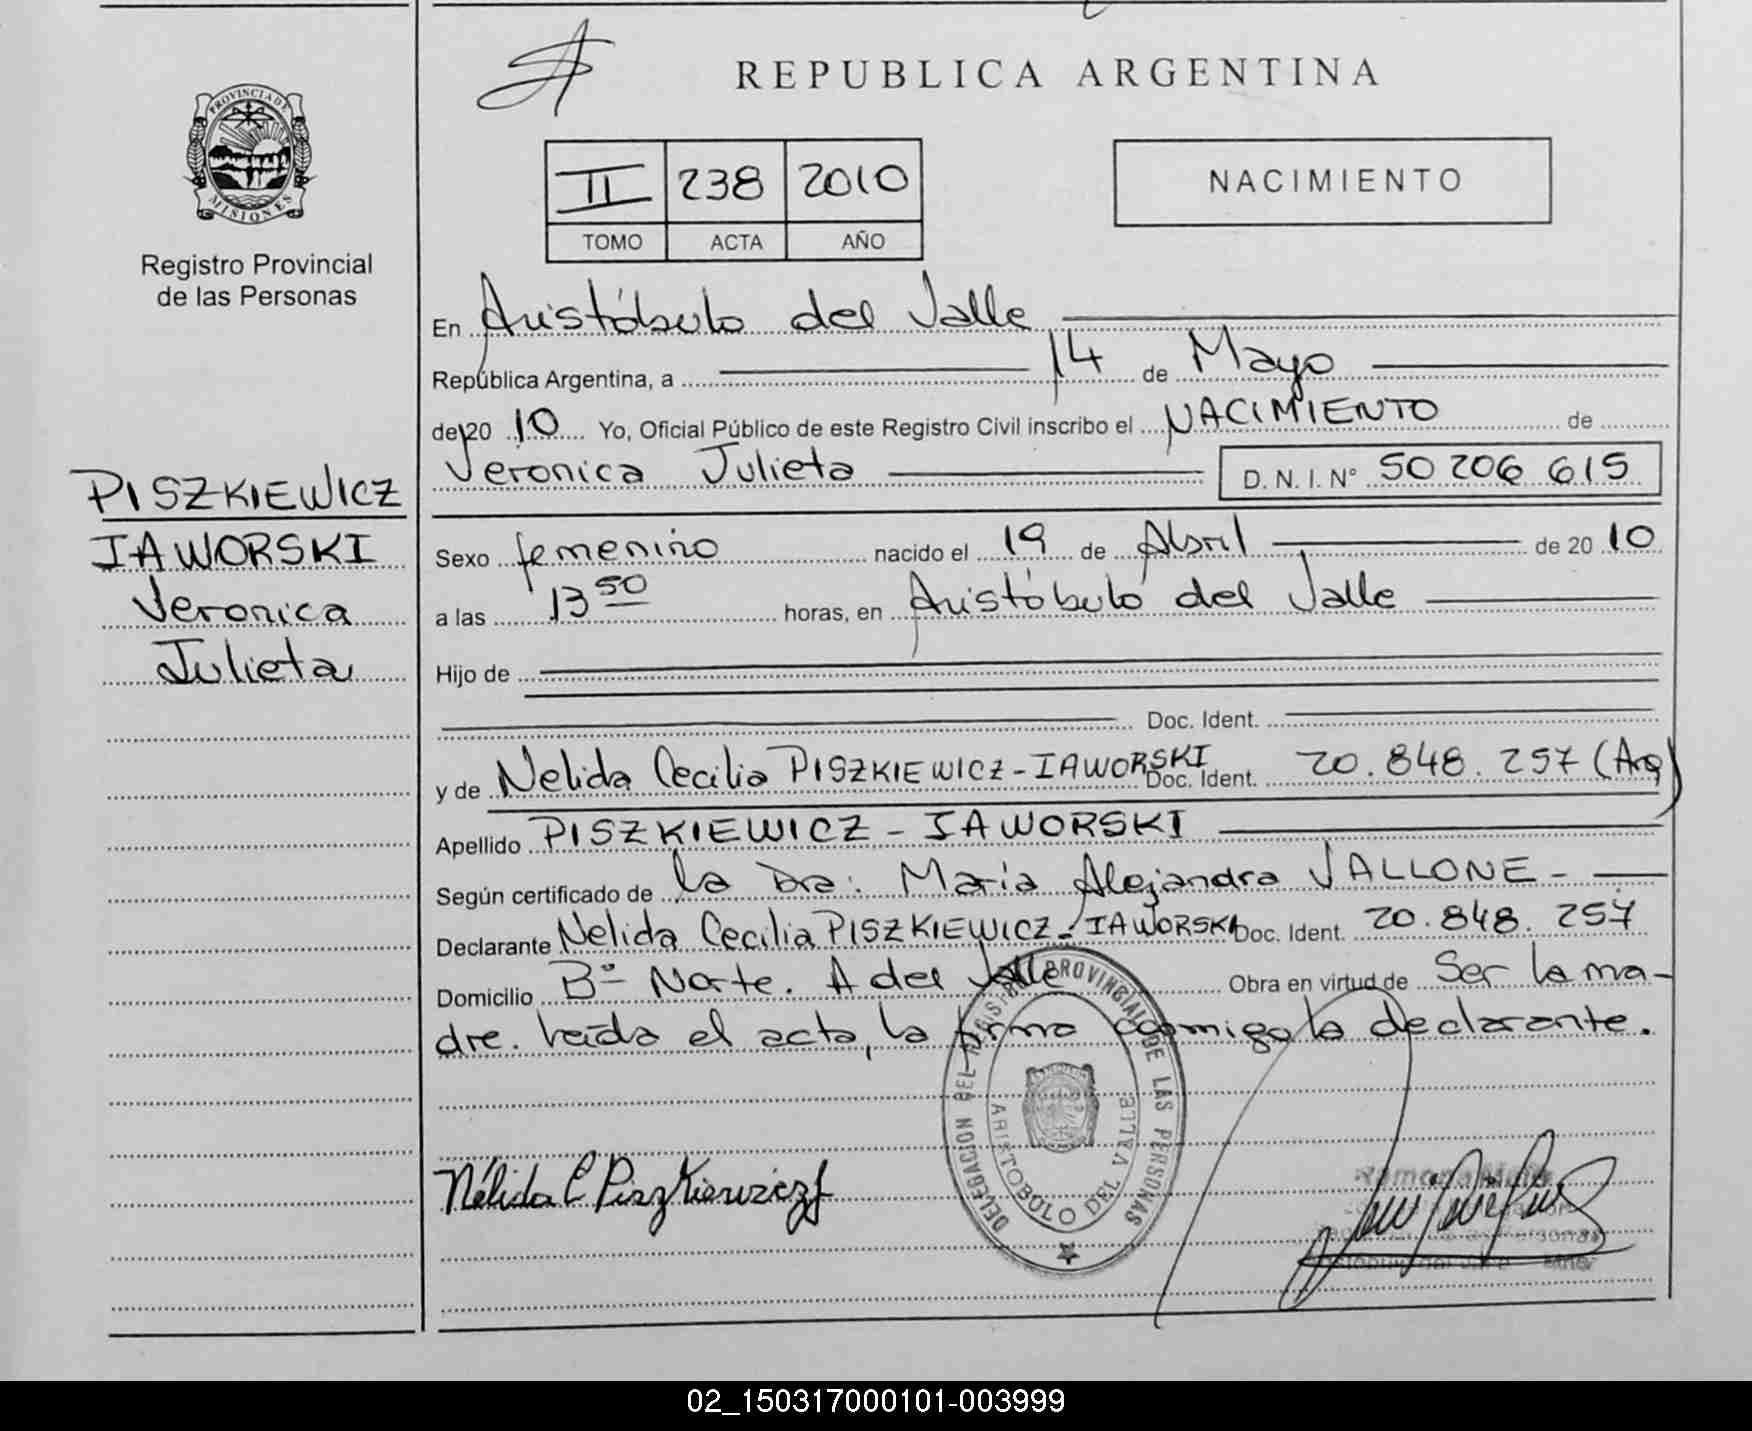 REPUBLICA ARGENTINA
PROVINCIA DE MISIONES
Registro Provincial
de las Personas
II 238 2010
TOMO ACTA AÑO
NACIMIENTO
PISZKIEWICZ
IAWORSKI
Veronica
Julieta
En Aristóbulo del Valle
República Argentina, a 14 de Mayo
de 20 10 Yo, Oficial Público de este Registro Civil inscribo el NACIMIENTO de
Veronica Julieta D. N. I. Nº 50 206 615
Sexo femenino nacido el 19 de Abril de 20 10
a las 13 50 horas, en Aristóbulo del Valle
Hijo de
Doc. Ident.
y de Nelida Cecilia PISZKIEWICZ-IAWORSKI Doc. Ident. 20.848.257 (Arg)
Apellido PISZKIEWICZ - IAWORSKI
Según certificado de la Dra. Maria Alejandra VALLONE -
Declarante Nelida Cecilia PISZKIEWICZ-IAWORSKI Doc. Ident. 20.848.257
Domicilio Bº Norte. A del Valle Obra en virtud de Ser la ma-
dre. Leída el acta, la firma conmigo la declarante.
DELEGACION DEL REGISTRO PROVINCIAL DE LAS PERSONAS
ARISTOBULO DEL VALLE
Nélida C Piszkiewicz
Ramona
02_150317000101-003999